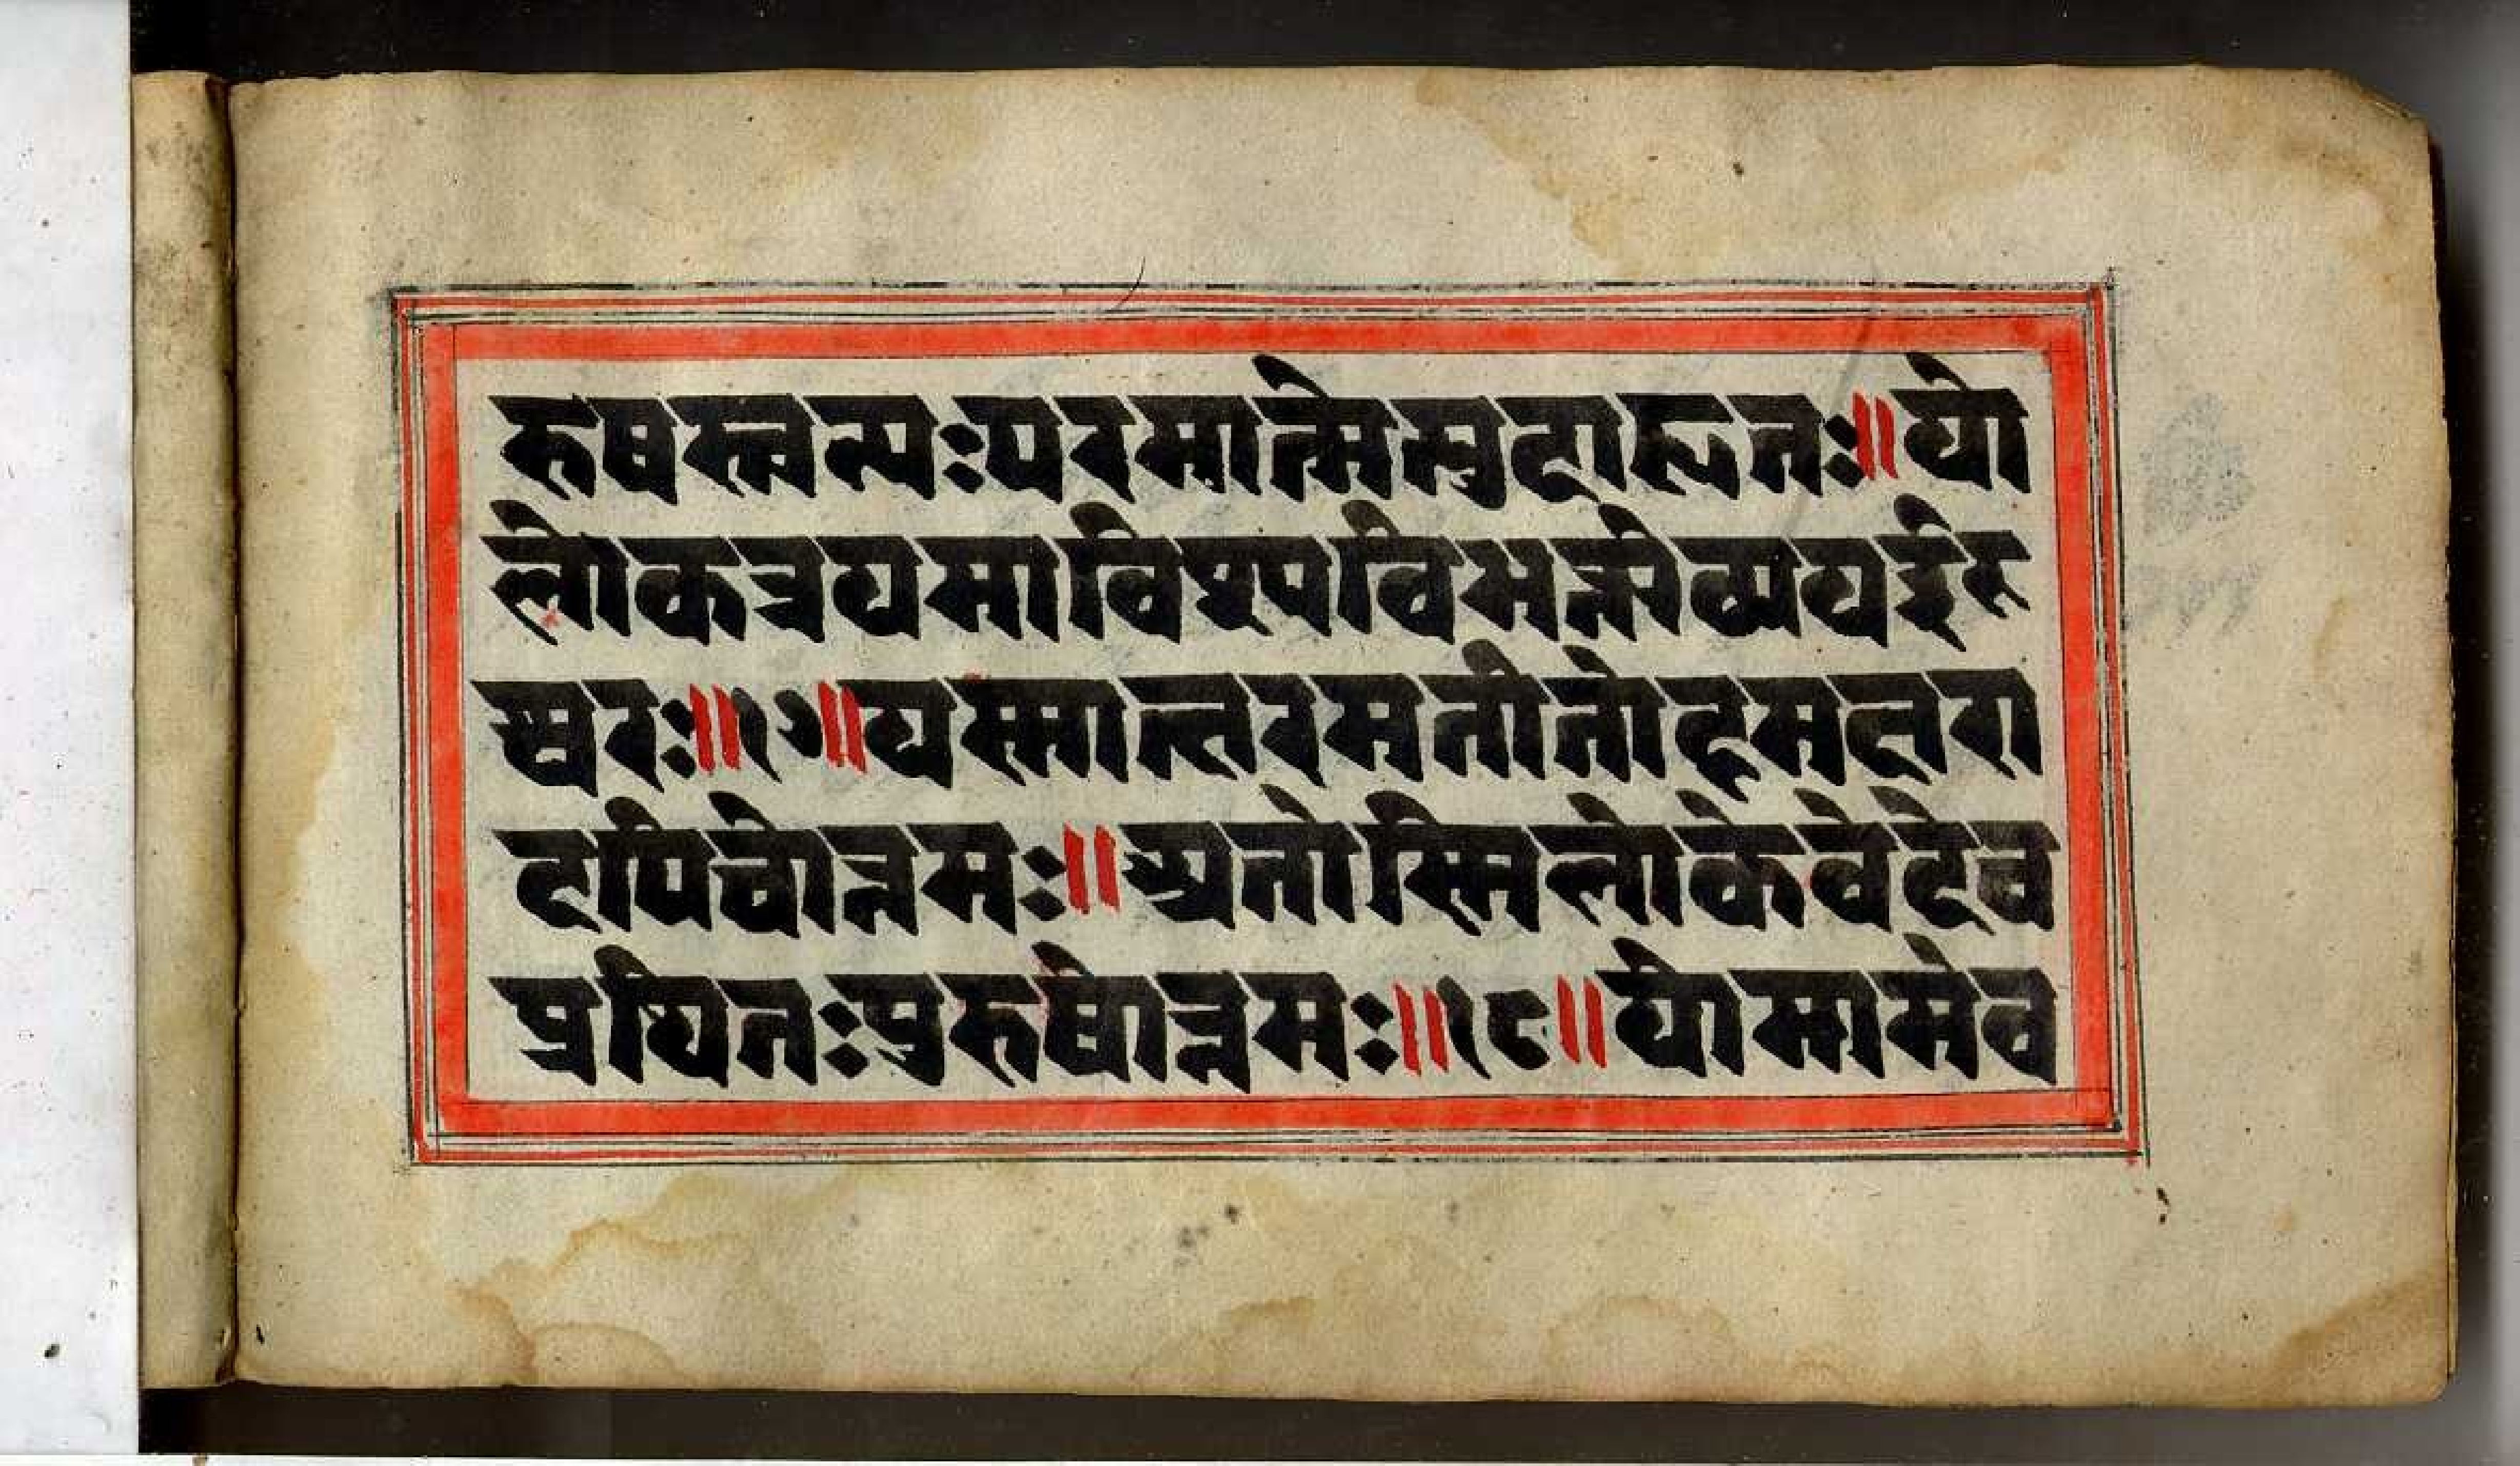 रुषस्त्वन्यःपरमात्मेत्युदाहृतः॥यो
लोकत्रयमाविश्यविभर्त्त्यव्ययईश्
वरः॥१७॥यस्मात्क्षरमतीतोहमक्षरा
दपिचोत्तमः॥अतोस्मिलोकेवेदेच
प्रथितःपुरुषोत्तमः॥१८॥योमामेव